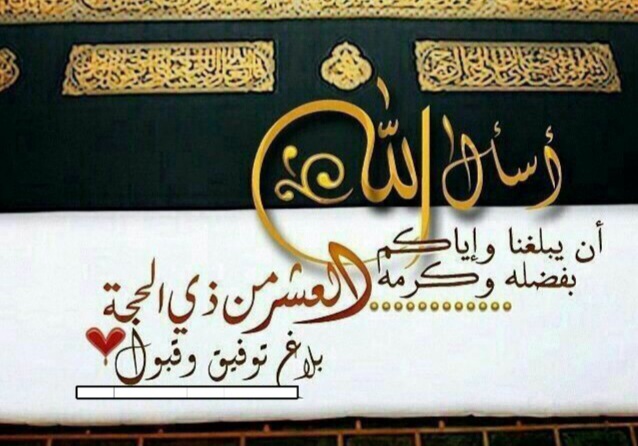 أسأل الله
أن يبلغنا وإياكم
بفضله وكرمه
العشر من ذي الحجة
بلاغ توفيق وقبول